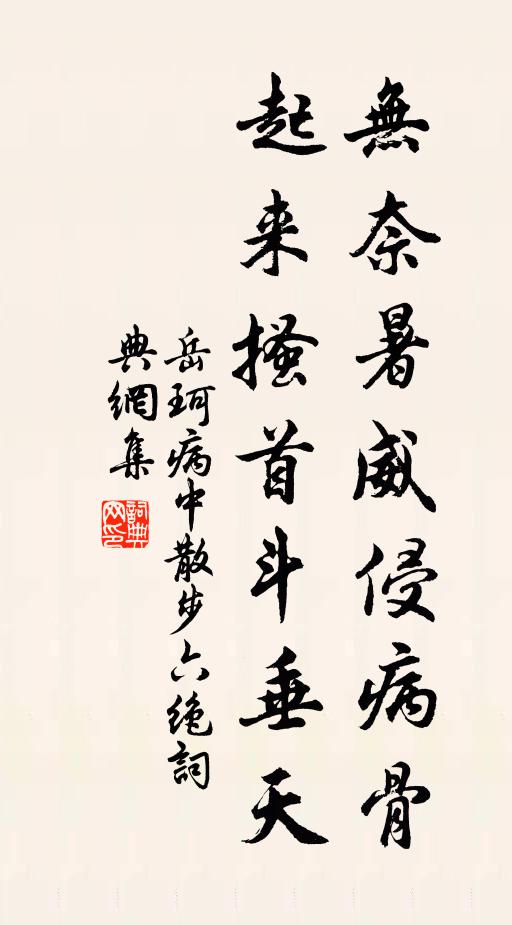 無奈暑威侵病骨
起来搔首斗垂天
岳珂病中散步六绝詞
典網集
詞典网印